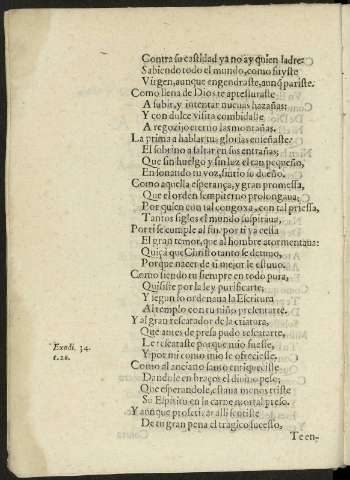 Contra su castidad ya no ay quien ladre:
Sabiendo todo el mundo, como fuyste
Virgen, aunque engendraste, aunq̃ pariste.
Como llena de Dios te apressuraste
A subir, y intentar nueuas hazañas:
Y con dulce visita combidaste
A regozijo eterno las montañas.
La prima a hablar tu gloria enseñaste:
El sobrino a saltar en sus entrañas;
Que sin huelgo y sin luz el tan pequeño,
En sonando tu voz, sintio su dueño.
Como aquella esperança, y gran promessa,
Que el orden sempiterno prolongaua;
Por quien con tal congoxa, con tal priessa,
Tantos siglos el mundo suspiraua,
Por ti se cumple al fin, por ti ya cessa
El gran temor, que al hombre atormentaua:
Quiçà que Christo tanto se detuuo,
Porque nacer de ti mejor le estuuo.
Como siendo tu siempre en todo pura,
Quisiste por la ley purificarte;
Y segun lo ordenaua la Escritura
Al templo con tu niño presentarte.
Y al gran rescatador de la criatura,
Que antes de presa pudo rescatarte,
Le rescataste porque mio fuesse,
Y por mi como mio se ofreciesse.
Exodi. 34.
Como al anciano santo enriqueciste
Dandole en braços el diuino peso;
Que esperandole, estaua menos triste
Su Espiritu en la carne mortal preso.
Y aunque profetizar alli sentiste
De tu gran pena el tragico sucesso,
Te en-